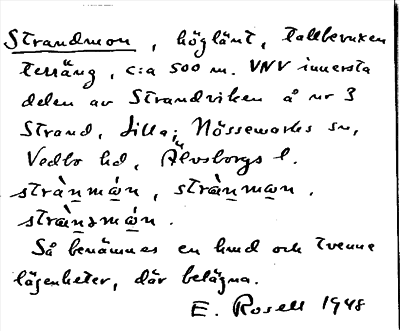 Strandmon, höglänt, tallbevuxen
terräng, c:a 500 m. VNV innersta
delen av Strandviken å nr 3
Strand, Lilla, i Nössemarks sn,
Vedbo hd, Älvsborgs l.
strànmón, strànmon,
stransmón.
Så benämnes en hmd och tvenne
lägenheter, där belägna.
E. Rosell 1948